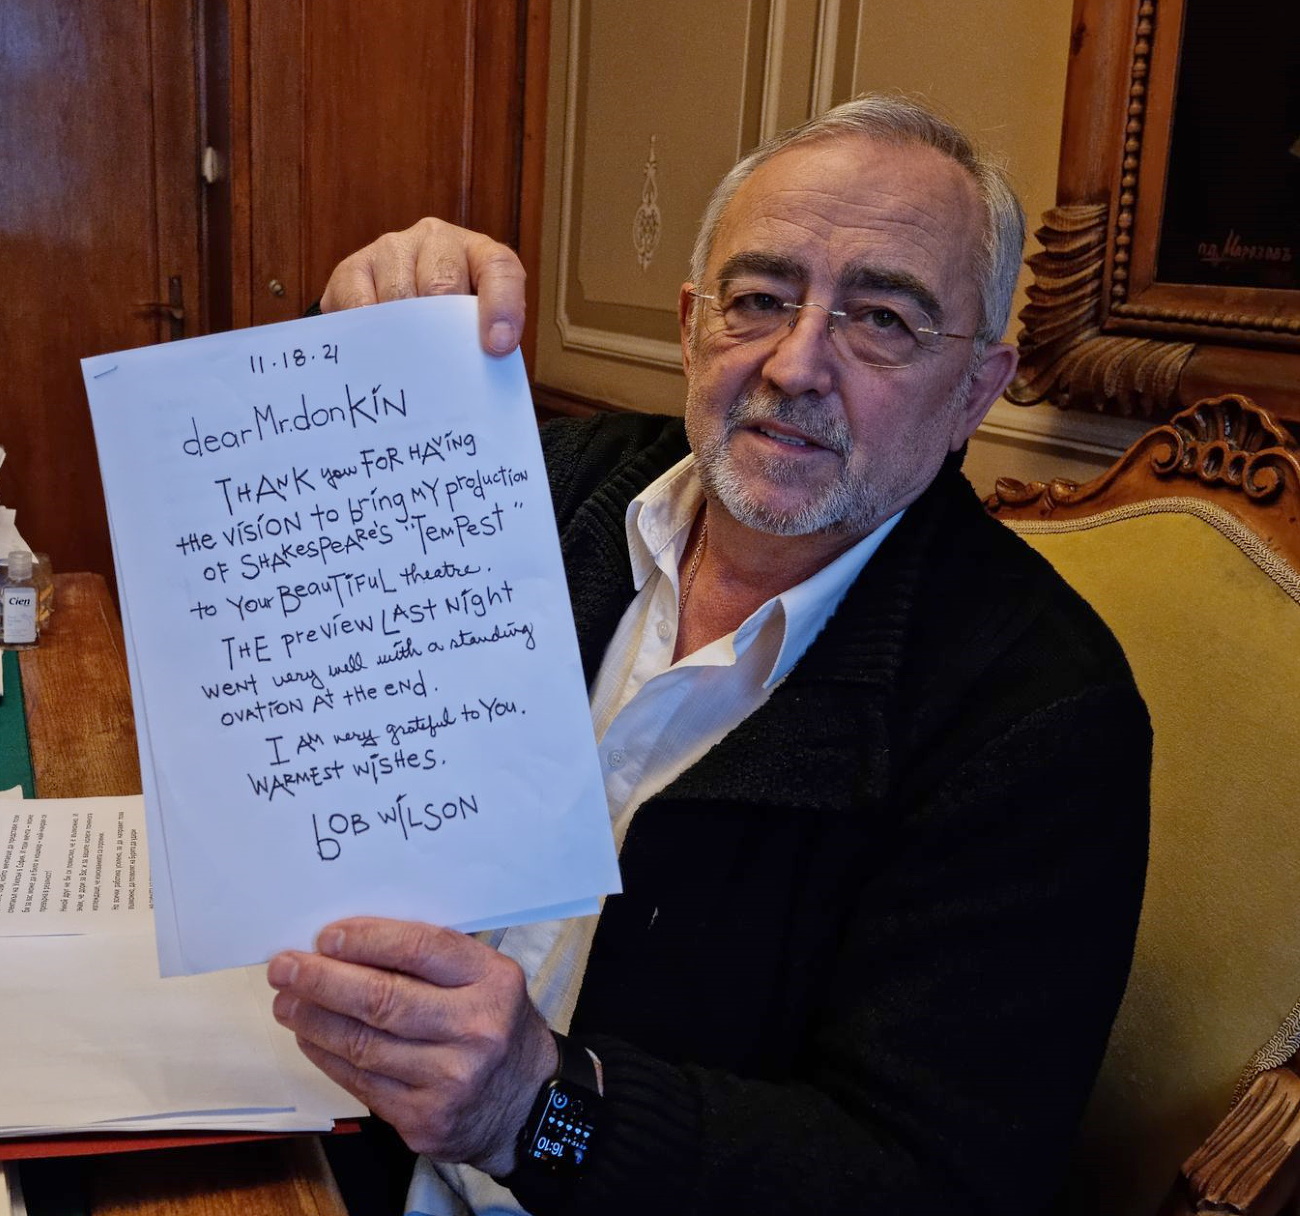 11.18.21
dear Mr. donKiN
THANK you FOR HAViNg
the VISION TO bring MY production
OF SHAKESPEARE'S "TEMPEST"
to Your BEAUTiFUL theatre.
THE preview LAST Night
WENT very well with a standing
OVATION AT tHe eND.
I AM very grateful to You.
WARMEST WiSHES.
bOB WiLSON
Cien
16:10